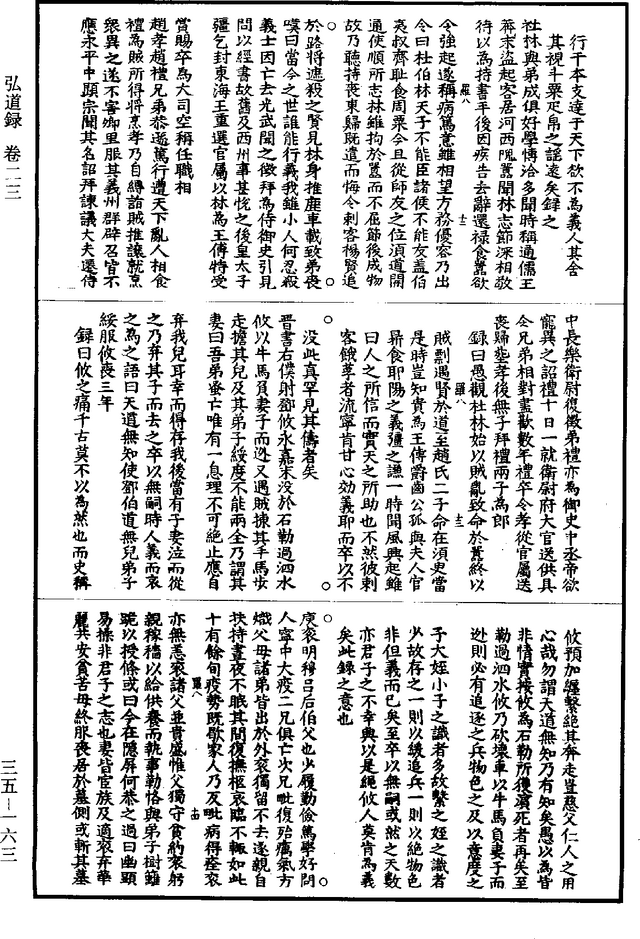 行干本支達于天下欲不為義人其舍
其視斗粟疋帛之謠遠矣錄之
社林與弟成俱好學博洽多聞時稱通儒王
莽末盜起客居河西隗囂聞林志節深相敬
待以為持書平後因疾告去辭還祿食囂欲
令強起遂稱病篤意雖相望方務優容乃出
令曰杜伯林天子不能臣諸侯不能友蓋伯
夷叔齊恥食周粟今且從師友之位須道開
通使順所志林雖拘於囂而不屈節後成物
故乃聽持喪東歸既遣而悔令刺客楊賢追
於路將遮殺之賢見林身推鹿車載致弟喪
嘆曰當今之世誰能行義我雖小人何忍殺
義士因亡去光武聞之徵拜為侍御史引見
問以經書故舊及西州事甚悅之後皇太子
疆乞封東海王重選官屬以林為王傅特受
賞賜卒為大司空稱任職相
趙孝趙禮兄弟恭遜篤行遭天下亂人相食
禮為賊所得將烹孝乃自縛詣賊推讓就烹
眾異之遂不害鄉里服其義州群辟召皆不
應永平中顯宗聞其名詔拜諫議大夫遷侍
中長樂衛尉復徵弟禮亦為御史中丞帝欲
寵異之詔禮十日一就衛尉府大官送供具
令兄弟相對盡歡數年禮卒令孝從官屬送
喪歸塟孝後無子拜禮兩子為郎
錄曰愚觀杜林始以賊亂致命於囂終以
賊剽遇賢於道至趙氏二子命在須臾當
是時豈知貴為王傅爵齒公孤與夫人官
昇食耶陽之義彊之謙一時聞風興起雖
曰人之所信而實天之所助也不然彼刺
客餓莩者流寧肯甘心効義耶而卒以不
沒此真罕見其儔者矣
晉書右僕射鄧攸永嘉末沒於石勒過泗水
攸以牛馬負妻子而迯又遇賊掠其牛馬步
走擔其兒及其弟子綏度不能兩全乃謂其
妻曰吾弟蚤亡唯有一息理不可絕止應自
棄我兒耳幸而得存我後當有子妻泣而從
之乃弃其子而去之卒以無嗣時人義而哀
之為之語曰天道無知使鄧伯道無兒弟子
綏服攸喪三年
錄曰攸之痛千古莫不以為然也而史稱
攸預加纏繫絕其奔走豈慈父仁人之用
心哉勿謂天道無知乃有知矣愚以為皆
非情實按攸為石勒所獲瀕死者再矣至
勒過泗水攸乃斫壞車以牛馬負妻子而
迯則必有追逐之兵物色之及以意度之
子大姪小子之識者多故繫之姪之識者
少故存之一則以緩追兵一則以絕物色
非但義而已矣至卒以無嗣或然之天數
亦君子之不幸與以是繩攸人莫肯為義
矣此錄之意也
庾袞明穆后伯父也少履勤儉篤學好問
人寧中大疫二兄俱亡次兄毗復殆癘氣方
熾父母諸弟皆出於外袞獨留不去遂親自
扶持晝夜不眠其間復撫柩哀臨不輟如此
十有餘旬疫勢既歇家人乃反毗病得痊袞
亦無恙袞諸父並貴盛惟父獨守貧約袞躬
親稼穡以給供養而執事勤恪與弟子樹籬
跪以授條或曰今在隱屏何恭之過曰幽顯
易操非君子之志也妻皆宦族及適袞弃華
麗共安貧苦母終服喪居於墓側或斬其墓
弘道錄 卷二三
三五—一六三